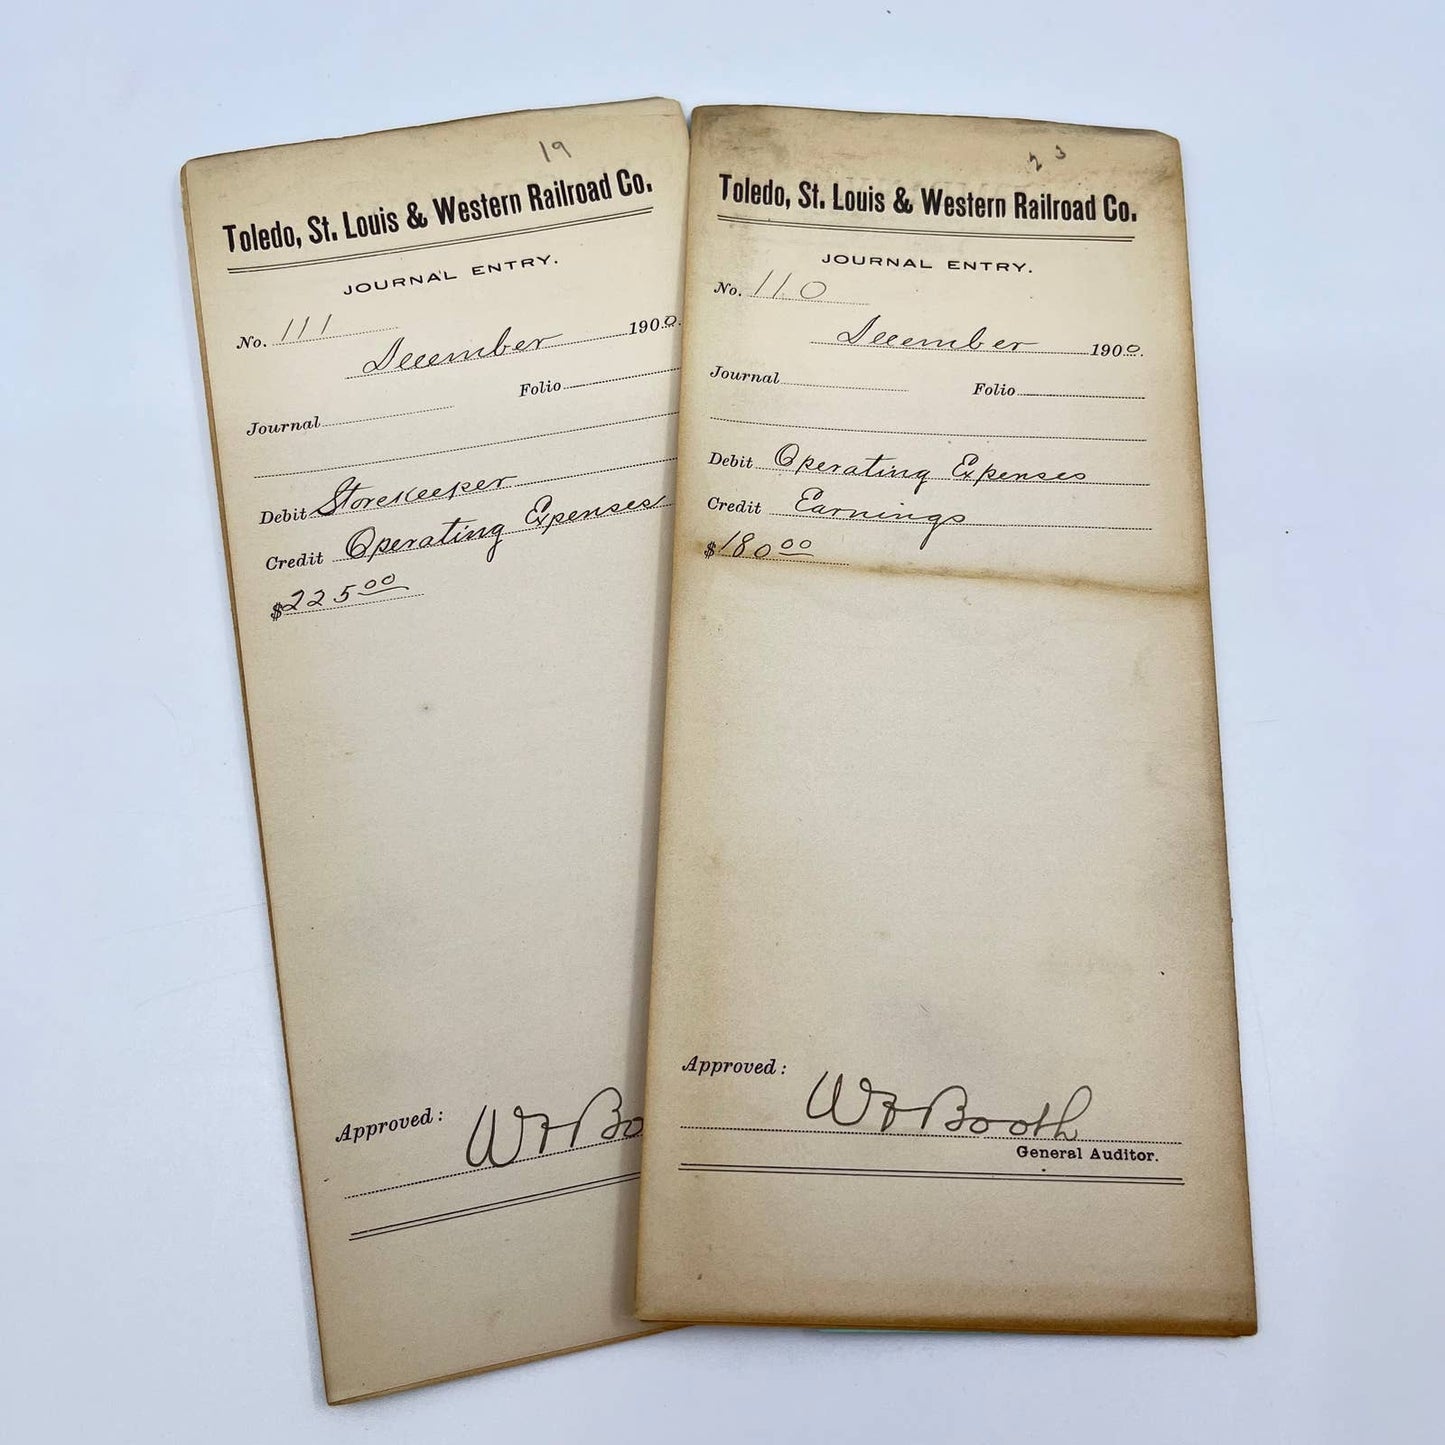 19
Toledo, St. Louis & Western Railroad Co.
JOURNAL ENTRY.
No. 111
December 1900.
Folio
Journal
Debit Storekeeper
Credit Operating Expenses
$225.00
Approved:
W F Bo
23
Toledo, St. Louis & Western Railroad Co.
JOURNAL ENTRY.
No. 110
December 1900.
Journal Folio
Debit Operating Expenses
Credit Earnings
$180.00
Approved:
W F Booth
General Auditor.